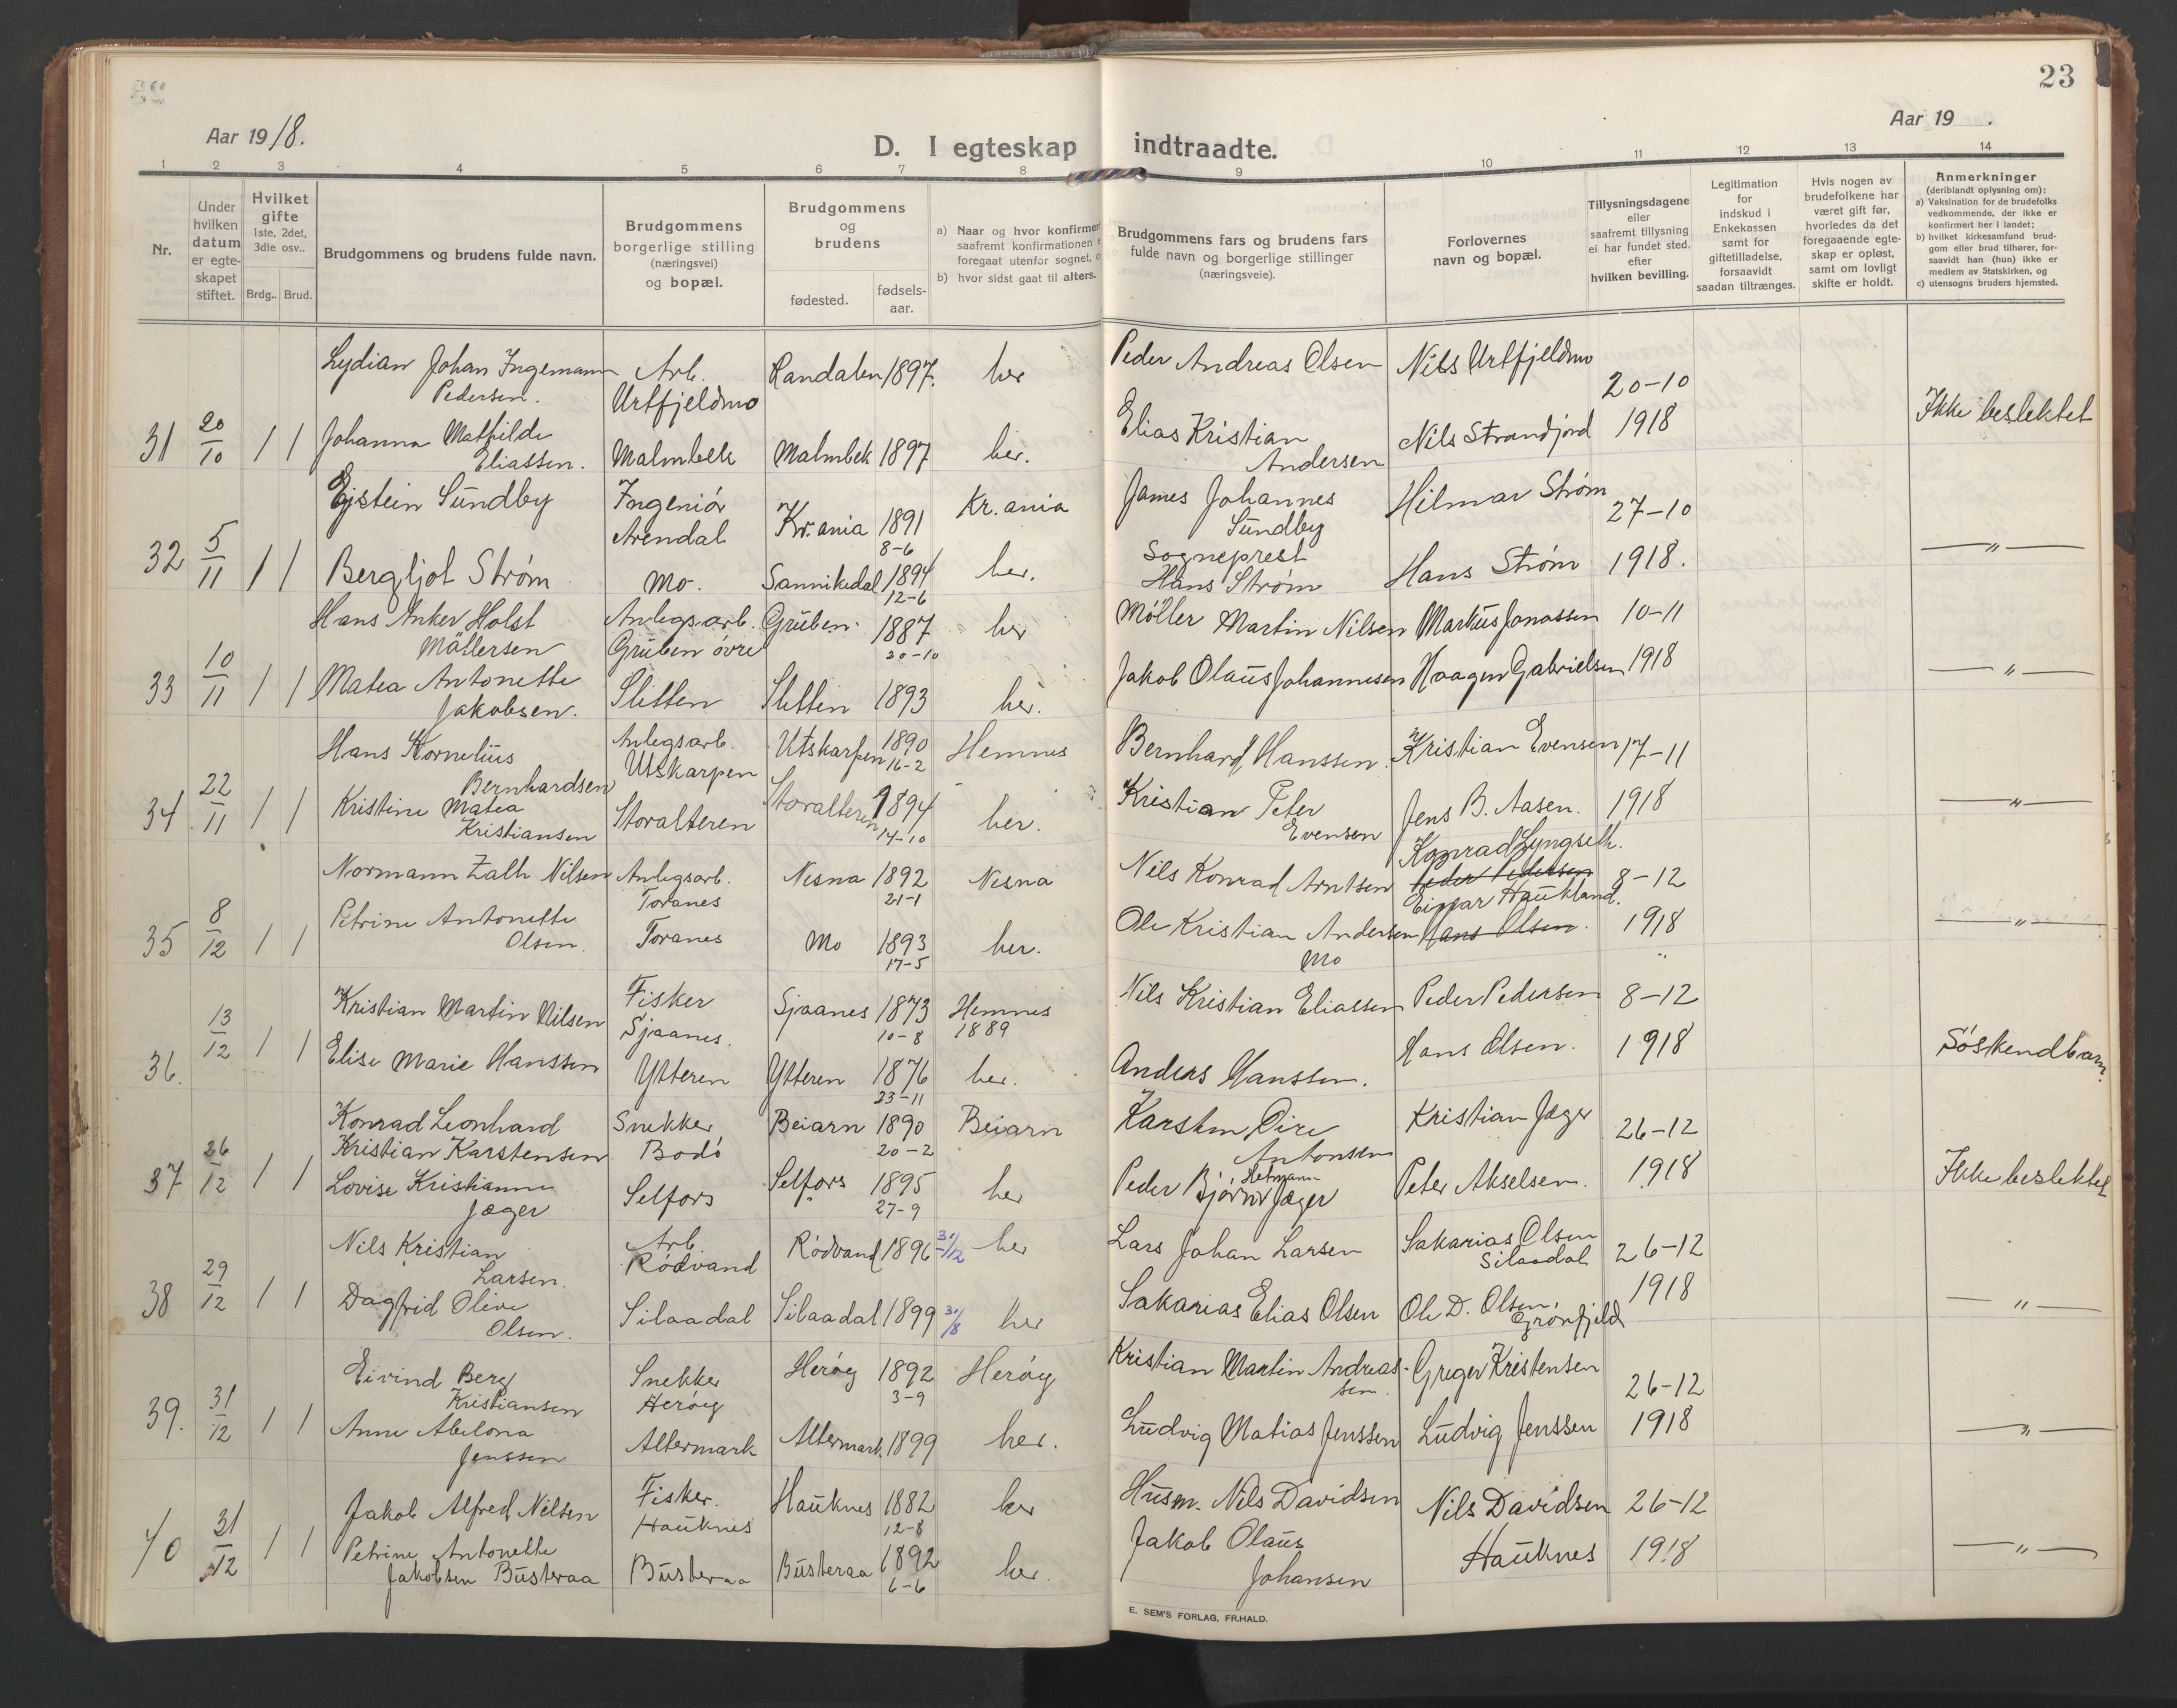 23
Aar 1918.
Aar 19 .
D. I egteskap indtraadte.
1 2 3 4 5 6 7 8 9 10 11 12 13 14
Nr.
Under
hvilken
datum
er egte-
skapet
stiftet.
Hvilket
gifte
1ste, 2det,
3die osv..
Brdg.. Brud.
Brudgommens og brudens fulde navn.
Brudgommens
borgerlige stilling
(næringsvei)
og bopæl.
Brudgommens
og
brudens
fødested.
fødsels-
aar.
a) Naar og hvor konfirmer
saafremt konfirmationen
foregaat utenfor sognet,
b) hvor sidst gaat til alters.
Brudgommens fars og brudens fars
fulde navn og borgerlige stillinger
(næringsveie).
Forlovernes
navn og bopæl.
Tillysningsdagene
eller
saafremt tillysning
ei har fundet sted.
efter
hvilken bevilling.
Legitimation
for
indskud i
Enkekassen
samt for
giftetilladelse,
forsaavidt
saadan tiltrænges.
Hvis nogen av
brudefolkene har
været gift før,
hvorledes da det
foregaaende egte-
skap er opløst,
samt om lovligt
skifte er holdt.
Anmerkninger
(deriblandt oplysning om):
a) Vaksination for de brudefolks
vedkommende, der ikke er
konfirmert her i landet;
b) hvilket kirkesamfund brud-
gom eller brud tilhører, for-
saavidt han (hun) ikke er
medlem av Statskirken, og
c) utensogns bruders hjemsted.
Lydian Johan Ingemann Arb. Randalen 1897. her Peder Andreas Olsen Nils Urtfjeldmo
Pedersen. Urtfjeldmo 20-10
31 20/10 1 1 Johanna Mathilde Malmbek Malmbek 1897 her. Elias Kristian Nils Strandjord 1918 Ikke beslektet
Eliassen. Andersen
Ejstein Sundby Ingeniør Kr.ania 1891 Kr.ania James Johannes Hilmar Strøm
Arendal 8-6 Sundby 27-10
32 5/11 1 1 Bergljot Strøm Mo. Sannikedal 1894 her. Sogneprest Hans Strøm 1918. — " —
12-6 Hans Strøm
Hans Anker Holst Anlegsarb. Gruben 1887 her Møller Martin Nilsen Markus Jonassen 10-11
Møllersen Gruben øvre 20-10
33 10/11 1 1 Matea Antonette Sletten Sletten 1893 her. Jakob Olaus Johannesen Haagen Gabrielsen 1918 — " —
Jakobsen.
Hans Kornelius Anlegsarb. Utskarpen 1890 Hemnes Bernhard Hanssen. Kristian Evensen 17-11
Bernhardsen Utskarpen 16-2
34 22/11 1 1 Kristine Matea Storalteren Storalteren 1894 her. Kristian Peter Jens B. Aasen. 1918 — " —
Kristiansen 14-10 Evensen
Konrad Lyngseth.
Normann Zalh Nilsen Anlegsarb. Nesna 1892 Nesna Nils Konrad Arntsen Peder Pedersen 8-12
Toranes 21-1 Einar Haukland.
35 8/12 1 1 Petrine Antonette Toranes Mo 1893 her. Ole Kristian Andersen Hans Olsen. 1918 — " —
Olsen. 17-5 Mo
Kristian Martin Nilsen Fisker Sjaanes 1873 Hemnes Nils Kristian Eliassen Peder Pedersen 8-12
Sjaanes. 10-8 1889
36. 13/12 1 1 Elise Marie Hanssen Ytteren Ytteren 1876 her. Anders Hanssen. Hans Olsen. 1918 Søskendbarn.
23-11
Konrad Leonhard Snekker Beiarn 1890 Beiarn Karsten Kristian Jæger 26-12
Kristian Karstensen Bodø 20-2 Antonsen
37 26/12 1 1 Lovise Kristianne Selfors Selfors 1895 her Peder Bjørnr Jæger Peter Akselsen. 1918 Ikke beslektet
Jæger 27-9
Nils Kristian Arb. Rødvand 1896 31/12 her Lars Johan Larsen Sakarias Olsen
Larsen. Rødvand Silaadal 26-12
38 29/12 1 1 Dagfrid Olive Silaadal Silaadal 1899 31/8 her Sakarias Elias Olsen Ole D. Olsen, 1918 — " —
Olsen. Grønfjeld
Eivind Berg Snekker Herøy 1892 Herøy Kristian Martin Andreas- Greger Kristensen
Kristiansen Herøy 3-9 sen. 26-12
39. 31/12 1 1 Anne Abelona Altermark Altermark. 1899 her. Ludvig Matias Jenssen Ludvig Jenssen 1918 — " —
Jenssen
Jakob Alfred Nilsen Fisker. Hauknes 1882 her Husm. Nils Davidsen Nils Davidsen 26-12
Hauknes 12-8
40 31/12 1 1 Petrine Antonette Busteraa Busteraa 1892 her. Jakob Olaus Hauknes 1918 — " —
Jakobsen Busteraa 6-6 Johansen
E. SEM'S FORLAG, FR.HALD.